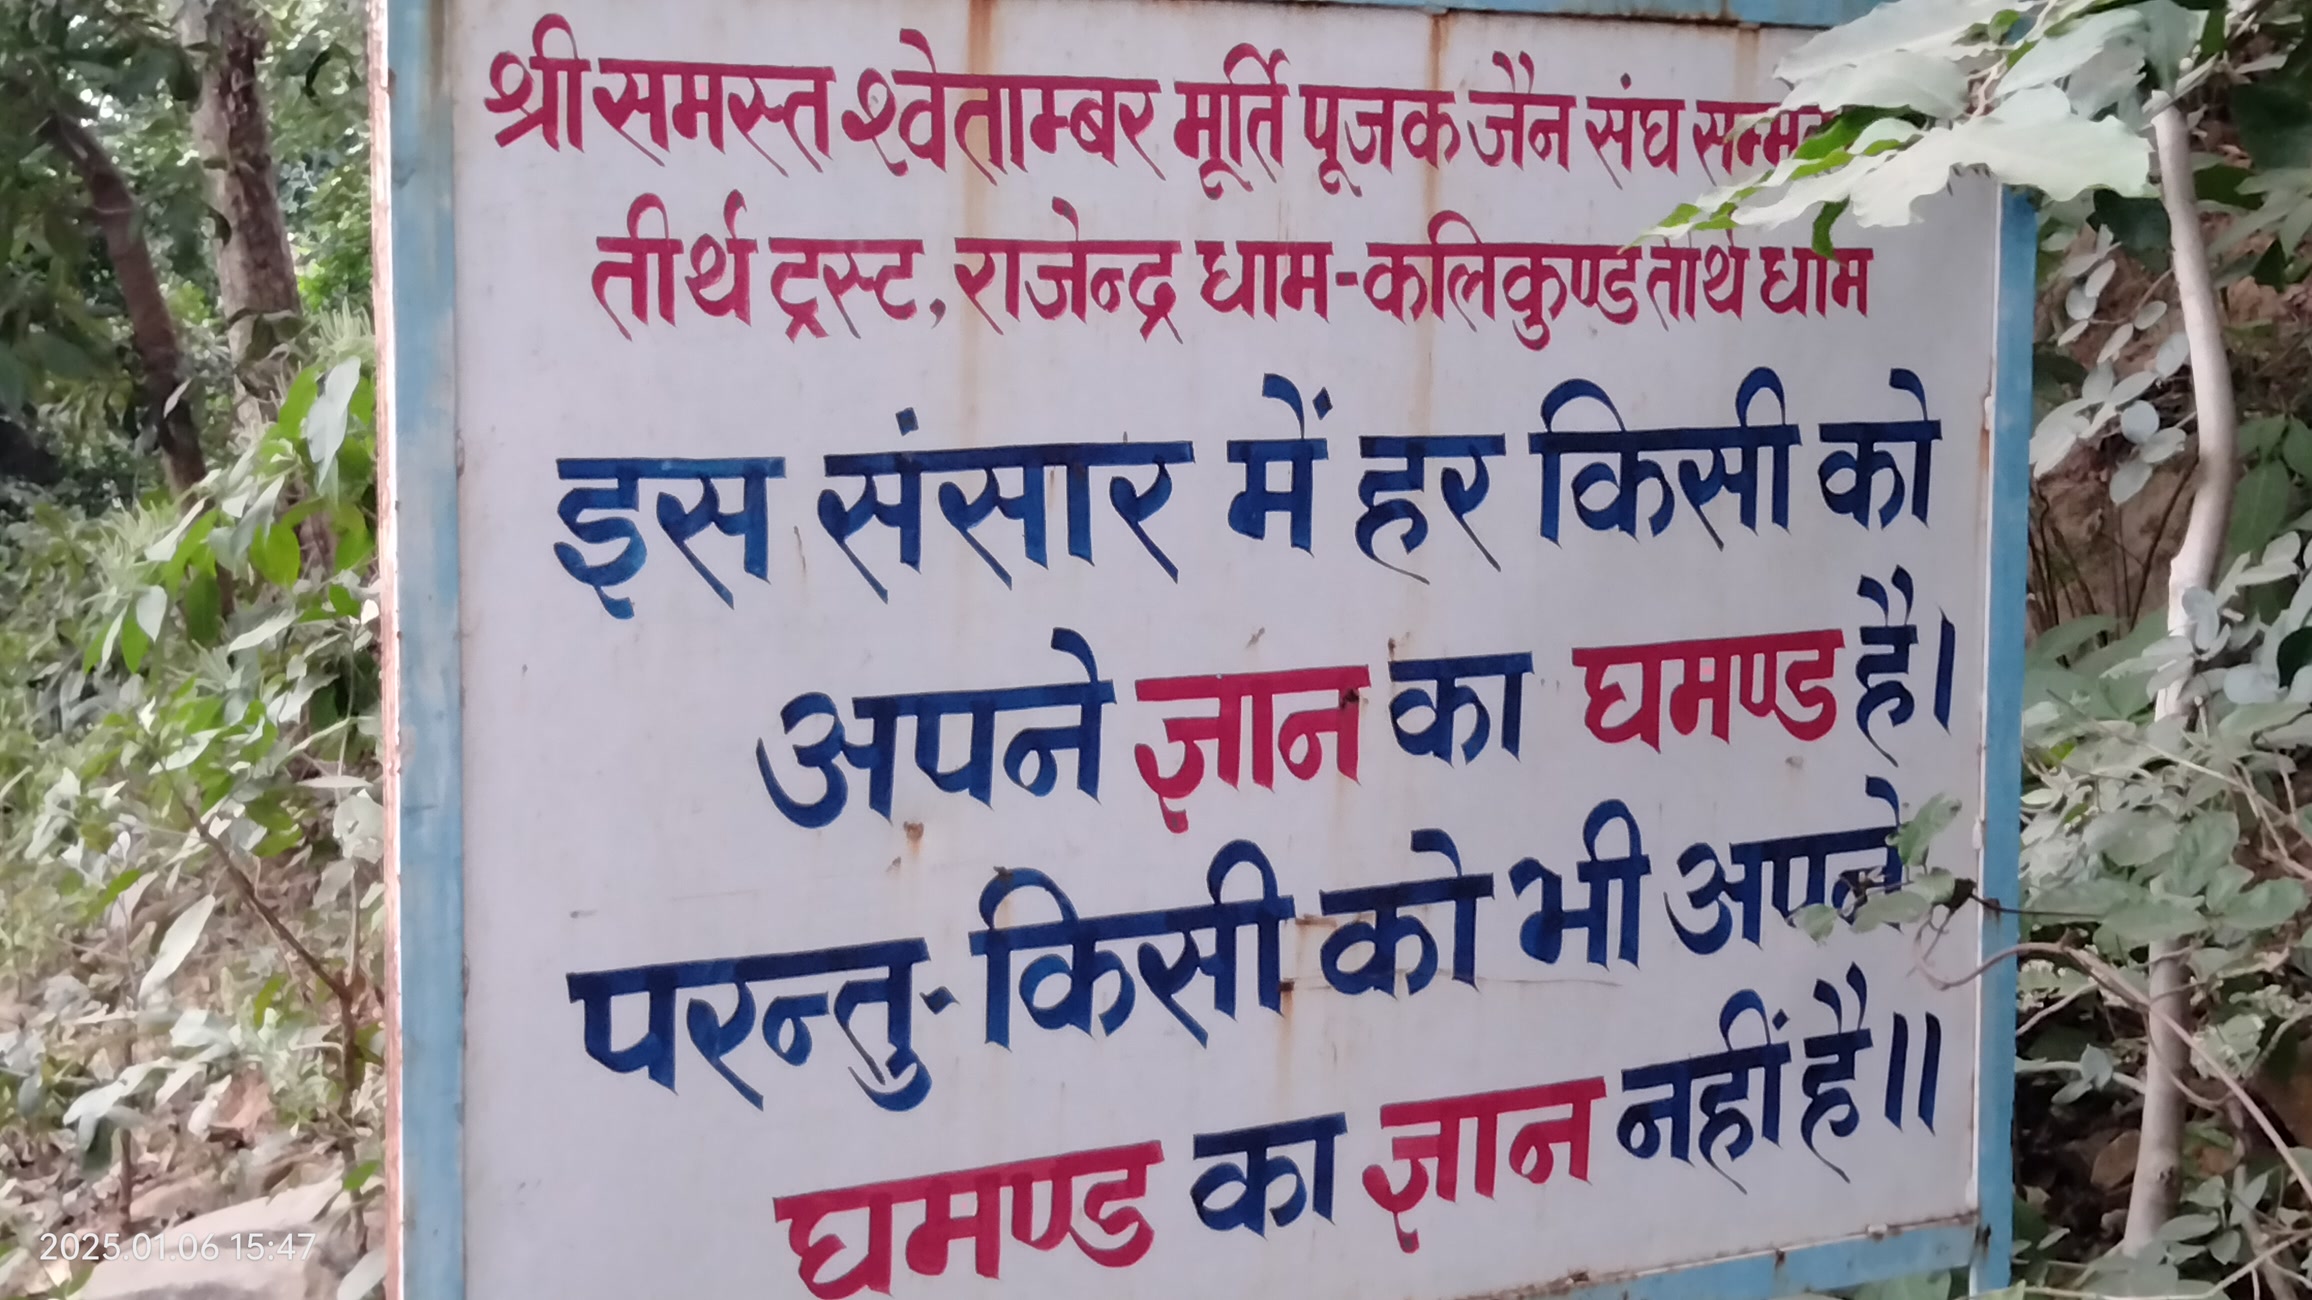 श्री समस्त श्वेताम्बर मूर्ति पूजक जैन संघ
तीर्थ ट्रस्ट, राजेन्द्र धाम-कलिकुण्ड तीर्थ धाम
इस संसार में हर किसी को
अपने ज्ञान का घमण्ड है।
परन्तु- किसी को भी अपने
घमण्ड का ज्ञान नहीं है॥
2025.01.06 15:47